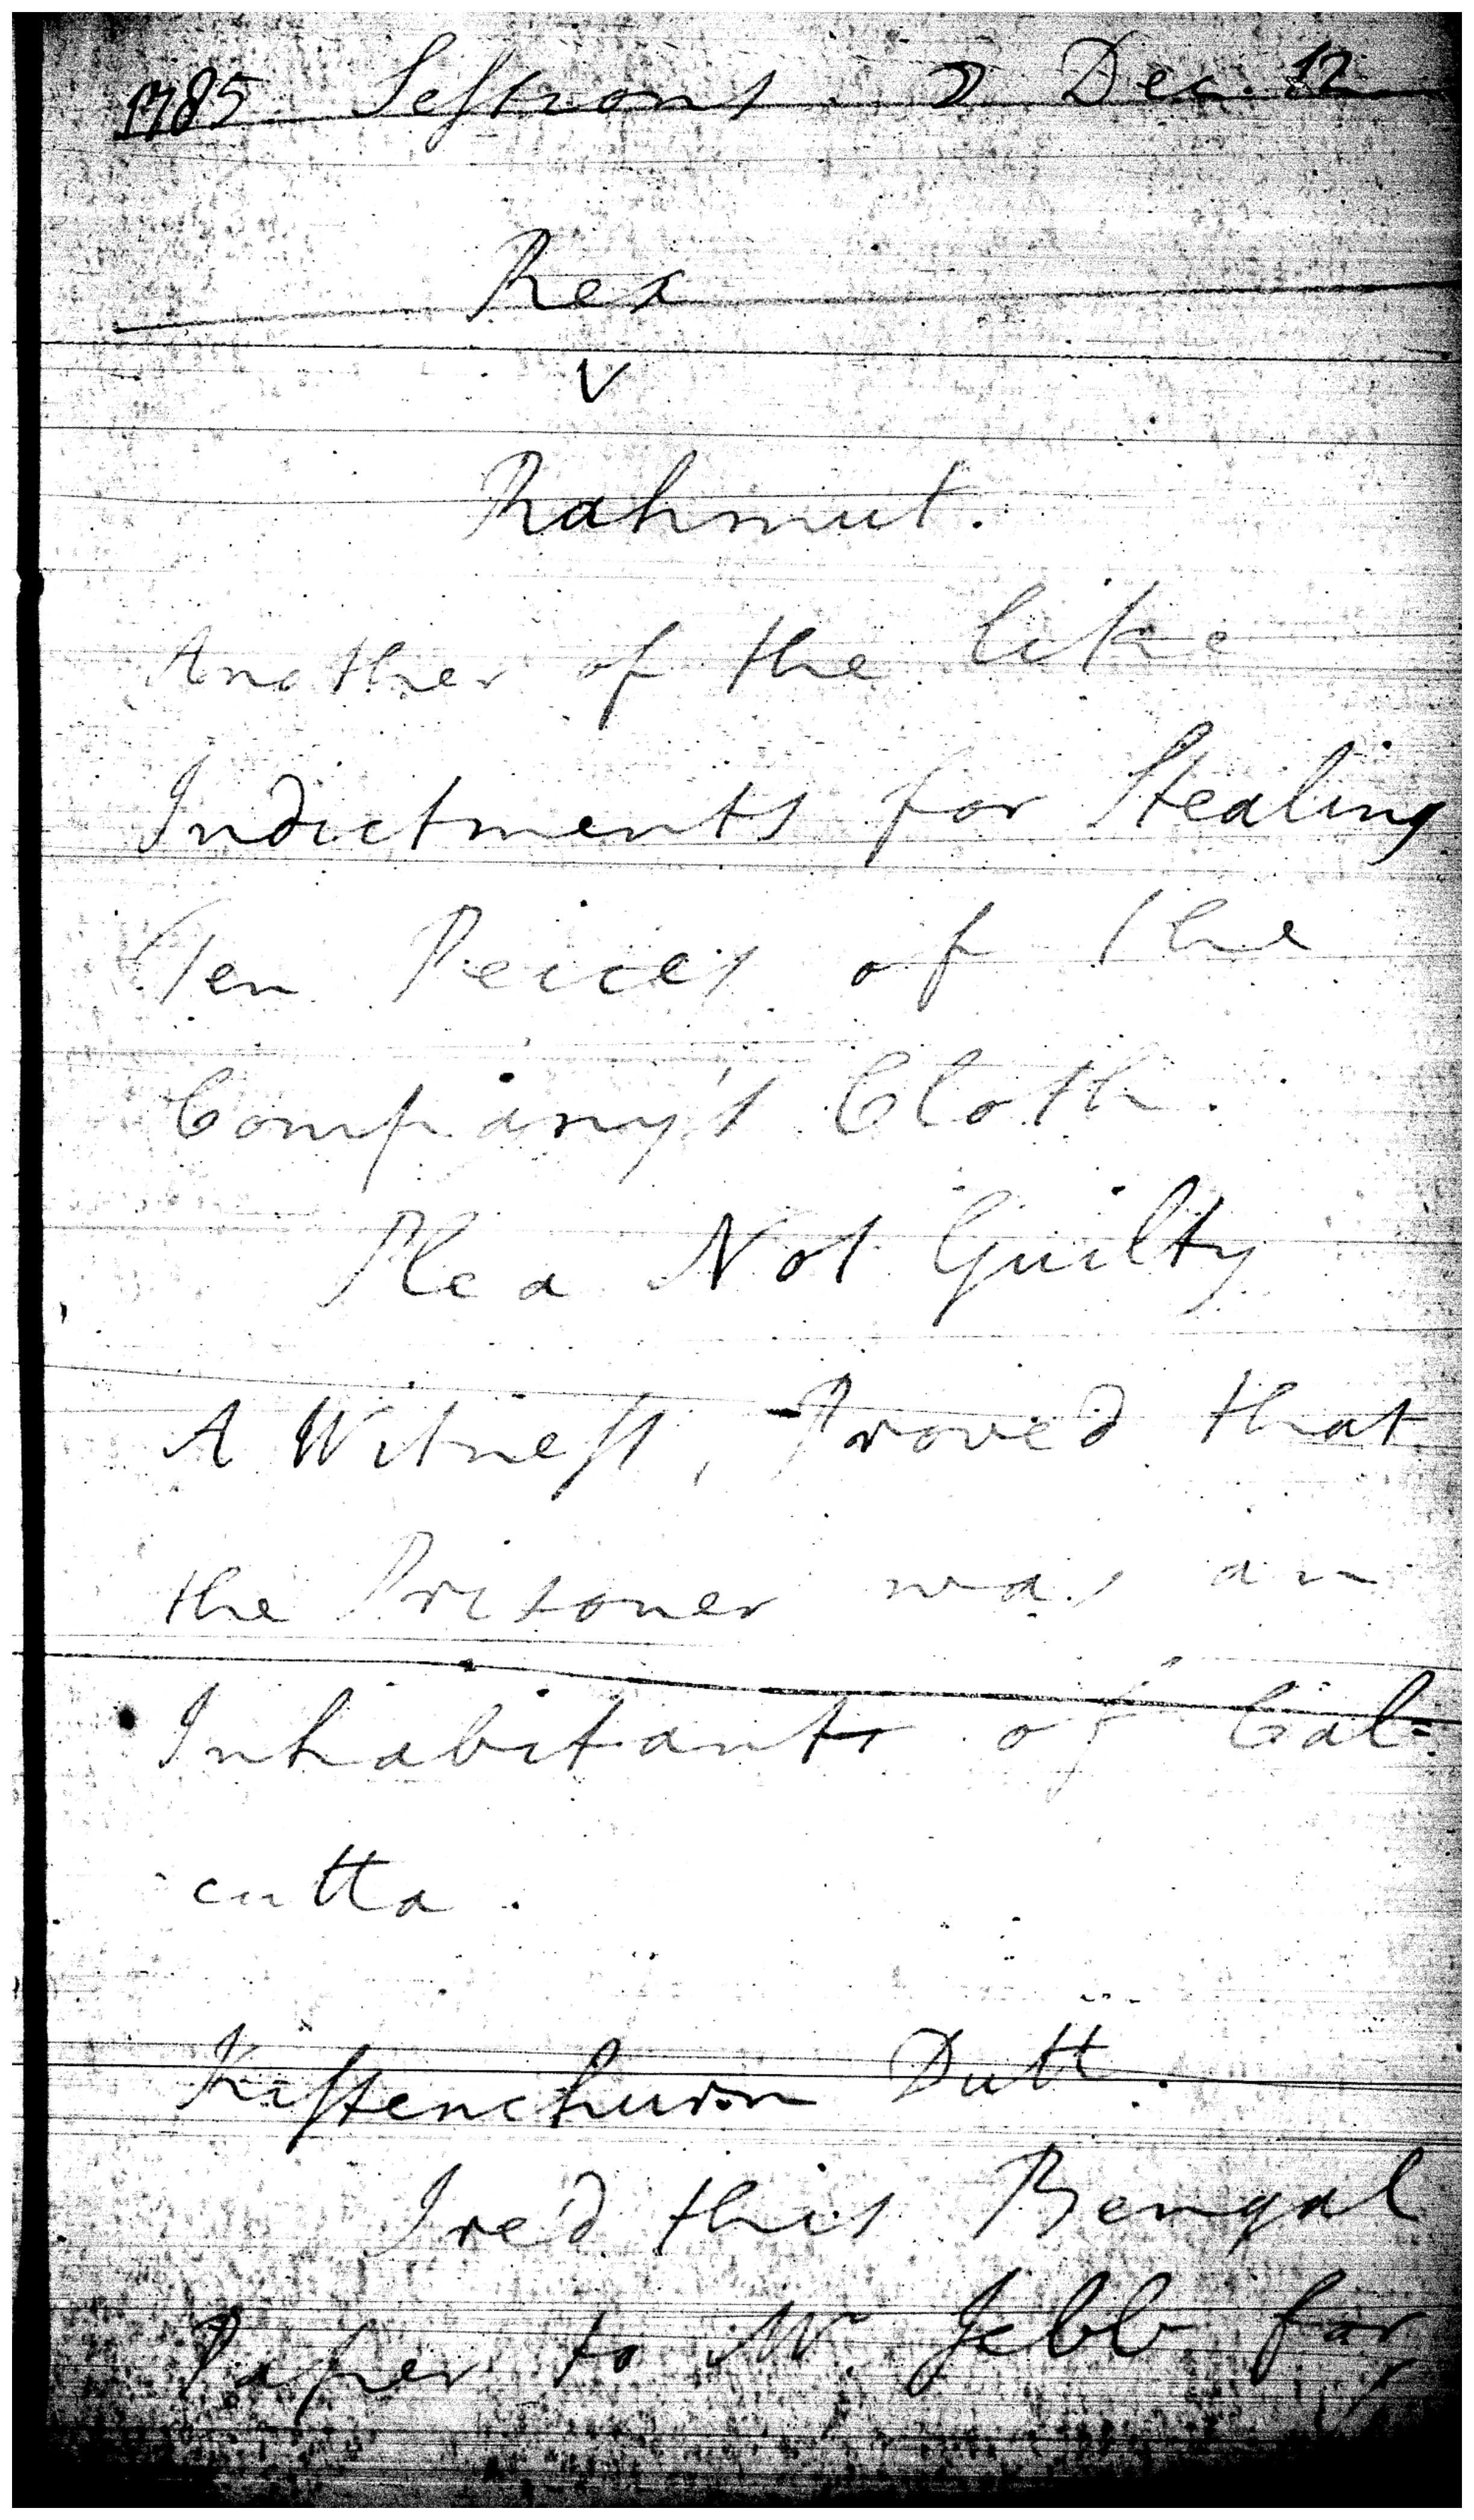 1785 Sessions. 2 Dec. 12
Rex
v
Rahmut.
Another of the like
Indictments for Stealing
Ten Peices of the
Company's Cloth.
Plea Not Guilty
A Witness, Proved that
the Prisoner was an
Inhabitant of Cal=
cutta.
Kistenchurn Dutt.
I re'd this Bengal
Paper to Mr Jebb for